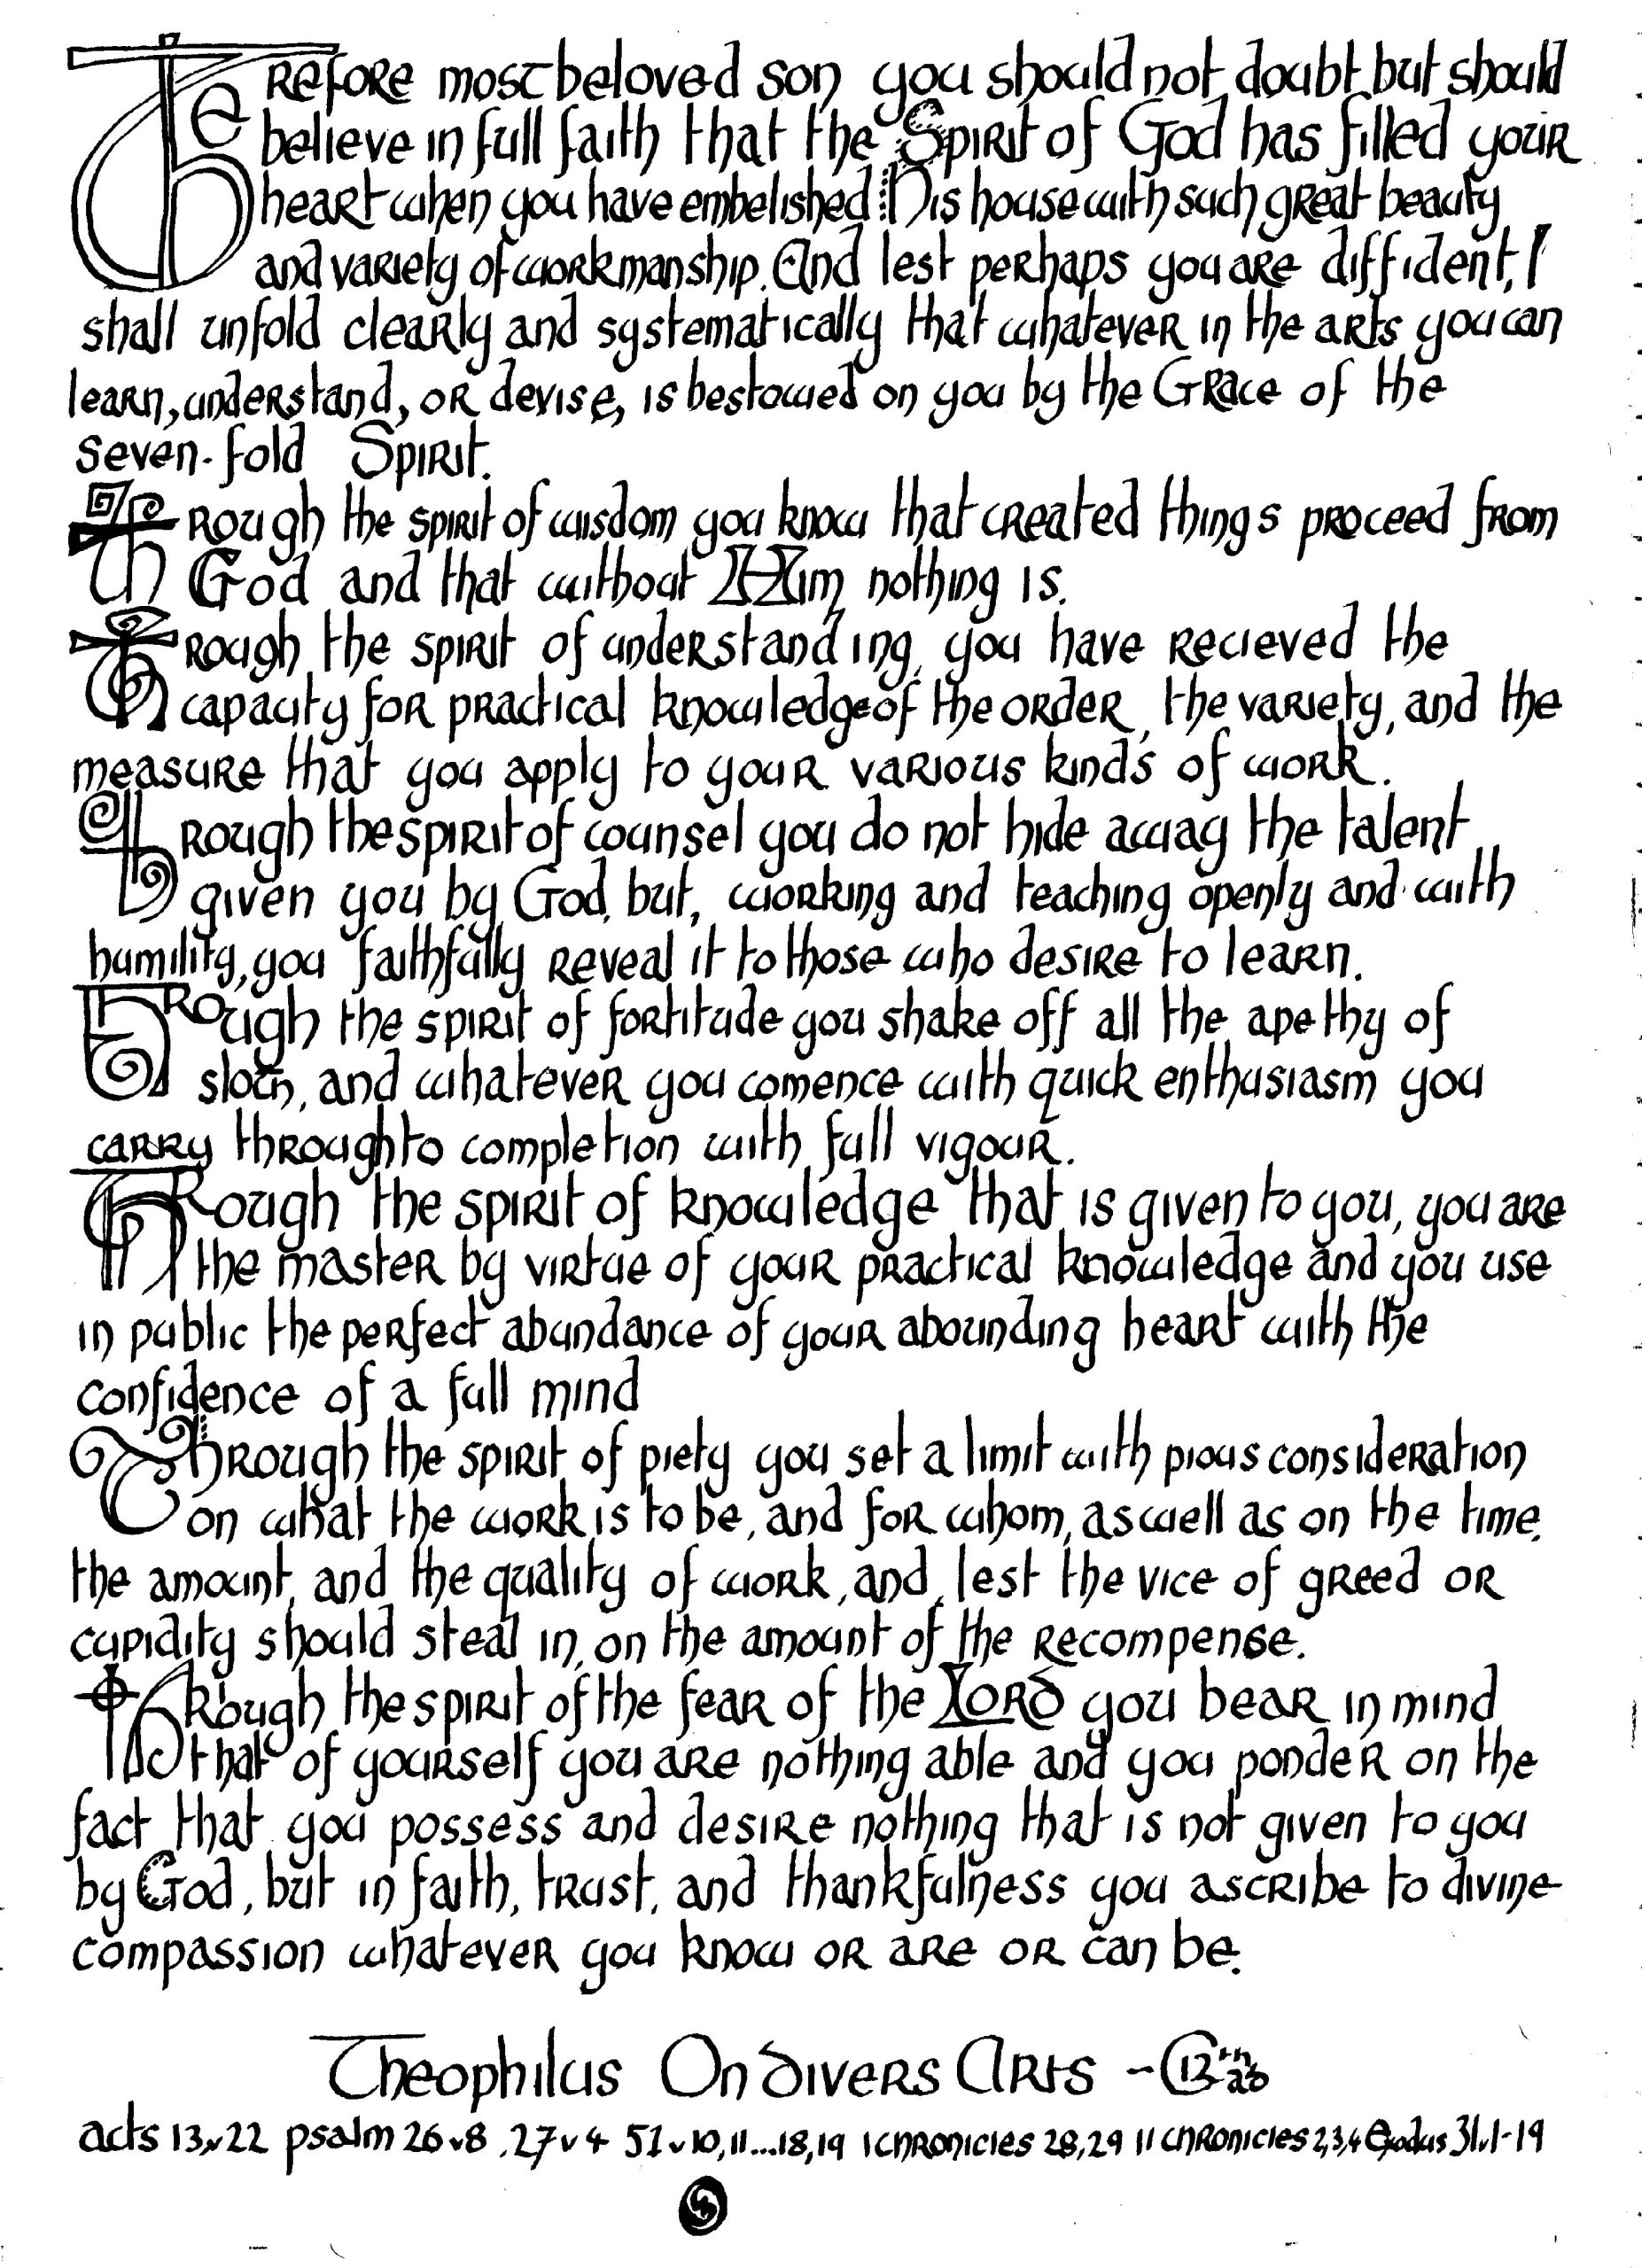 Therefore most beloved son you should not doubt but should
believe in full faith that the Spirit of God has filled your
heart when you have embelished His house with such great beauty
and variety of workmanship. And lest perhaps you are diffident, I
shall unfold clearly and systematically that whatever in the arts you can
learn, understand, or devise, is bestowed on you by the Grace of the
seven-fold Spirit.
Through the spirit of wisdom you know that created things proceed from
God and that without Him nothing is.
Through the spirit of understanding, you have recieved the
capacity for practical knowledge of the order, the variety, and the
measure that you apply to your various kinds of work.
Through the spirit of counsel you do not hide away the talent
given you by God, but, working and teaching openly and with
humility, you faithfully reveal it to those who desire to learn.
Through the spirit of fortitude you shake off all the apethy of
sloth, and whatever you comence with quick enthusiasm you
carry through to completion with full vigour.
Through the spirit of knowledge that is given to you, you are
the master by virtue of your practical knowledge and you use
in public the perfect abundance of your abounding heart with the
confidence of a full mind
Through the spirit of piety you set a limit with pious consideration
on what the work is to be, and for whom, as well as on the time,
the amount, and the quality of work, and, lest the vice of greed or
cupidity should steal in, on the amount of the recompense.
Through the spirit of the fear of the Lord you bear in mind
that of yourself you are nothing able and you ponder on the
fact that you possess and desire nothing that is not given to you
by God, but in faith, trust, and thankfulness you ascribe to divine
compassion whatever you know or are or can be.
Theophilus On Divers Arts - C12th
acts 13v22 psalm 26v8, 27v4 51v10,11...18,19 I chronicles 28,29 II chronicles 2,3,4 Exodus 31v1-19